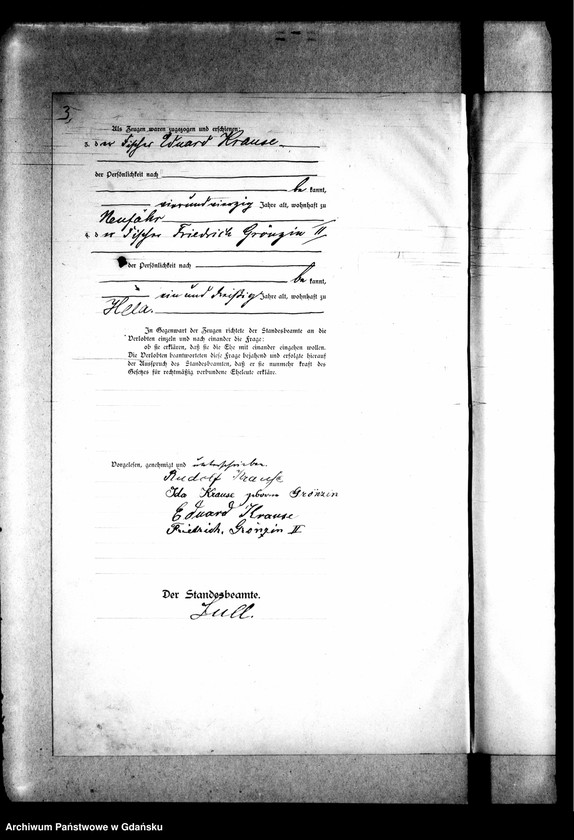 3,
Als Zeugen waren zugezogen und erschienen:
3. der Fischer Eduard Krause
der Persönlichkeit nach
be kannt,
vierundvierzig Jahre alt, wohnhaft zu
Neufähr
4. der Fischer Friedrich Grönzin II
der Persönlichkeit nach
be kannt,
ein und dreißig Jahre alt, wohnhaft zu
Hela.
In Gegenwart der Zeugen richtete der Standesbeamte an die
Verlobten einzeln und nach einander die Frage:
ob sie erklären, daß sie die Ehe mit einander eingehen wollen.
Die Verlobten beantworteten diese Frage bejahend und erfolgte hierauf
der Ausspruch des Standesbeamten, daß er sie nunmehr kraft des
Gesetzes für rechtmäßig verbundene Eheleute erkläre.
Vorgelesen, genehmigt und unterschrieben
Rudolf Krause
Ida Krause geborne Grönzin
Eduard Krause
Friedrich. Grönzin II
Der Standesbeamte.
Archiwum Państwowe w Gdańsku